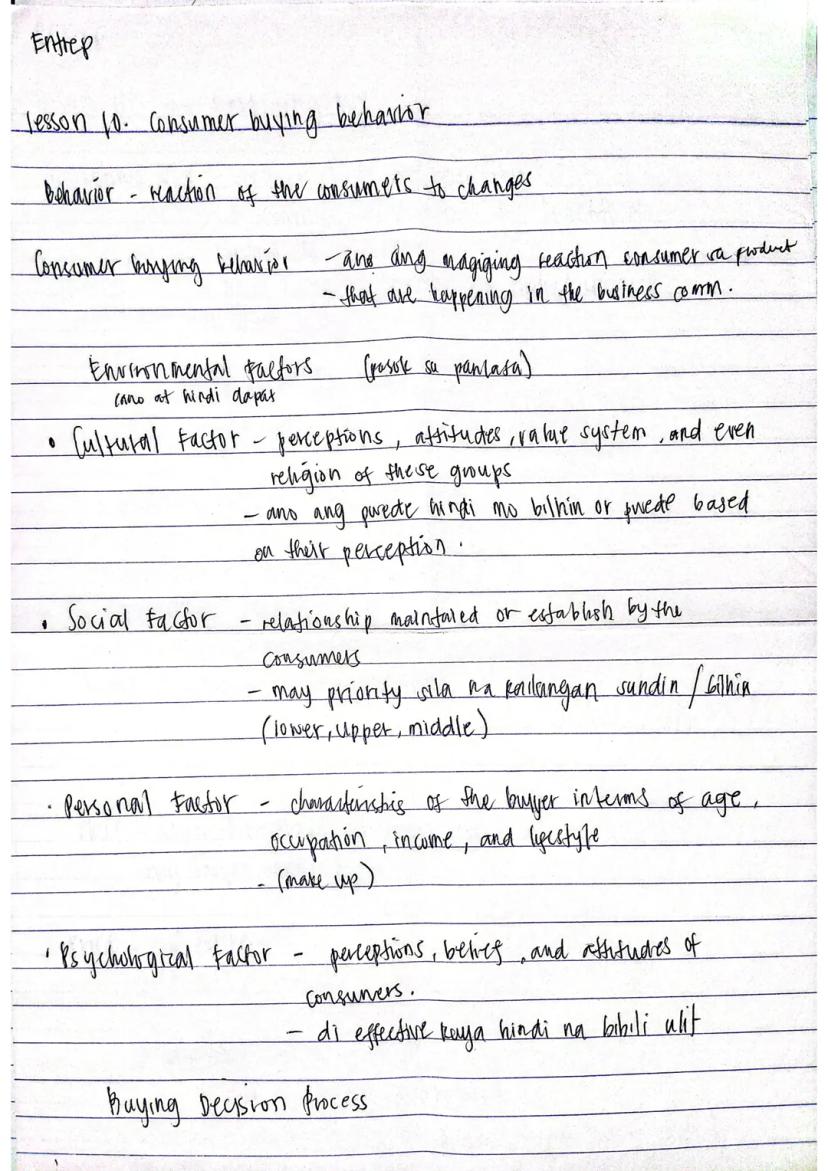 Entrep
lesson 10. Consumer buying behavior
Behavior - reaction of the consumers to changes
Consumer buying behavior - ano ang magiging reaction consumer sa product
- that are happening in the business comm.
Environmental Factors (pasok sa panlasa)
(ano at hindi dapat
• Cultural Factor - perceptions, attitudes, value system, and even
religion of these groups
- ano ang pwede hindi mo bilhin or pwede based
on their perception.
• Social Factor - relationship maintaied or establish by the
consumers
- may priority sila na kailangan sundin / bilhin
(lower, upper, middle)
• Personal Factor - characteristics of the buyer interms of age,
occupation, income, and lyestyle
- (make up)
• Psychological Factor - perceptions, belief, and attitudes of
consumers.
- di effective kaya hindi na bibili ulit
Buying Decision Process